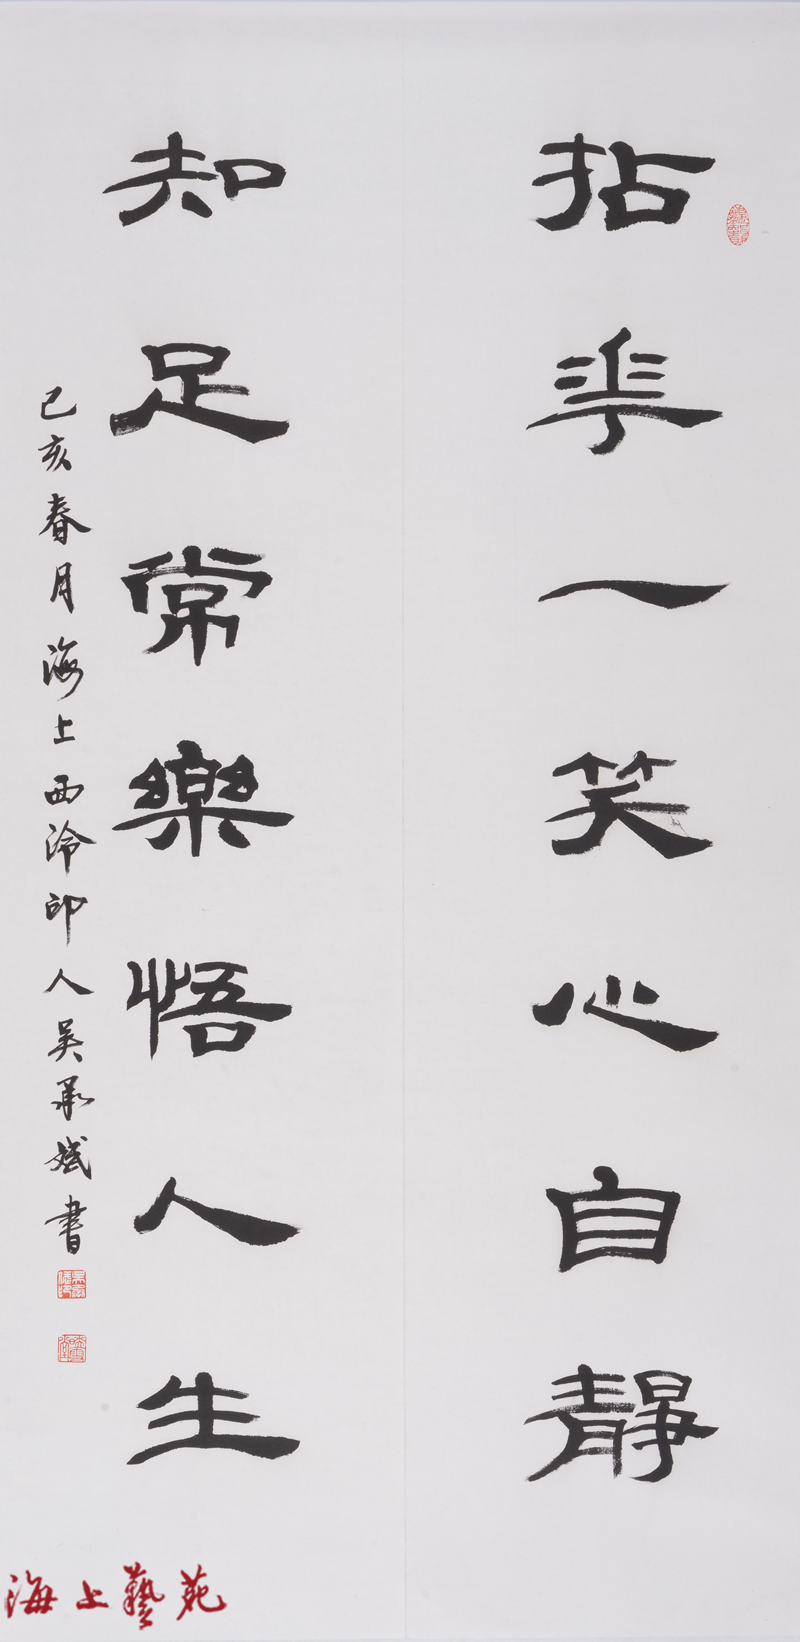 拈华一笑心自静
知足常樂悟人生
己亥春月海上西泠印人吴承斌書
海上藝苑